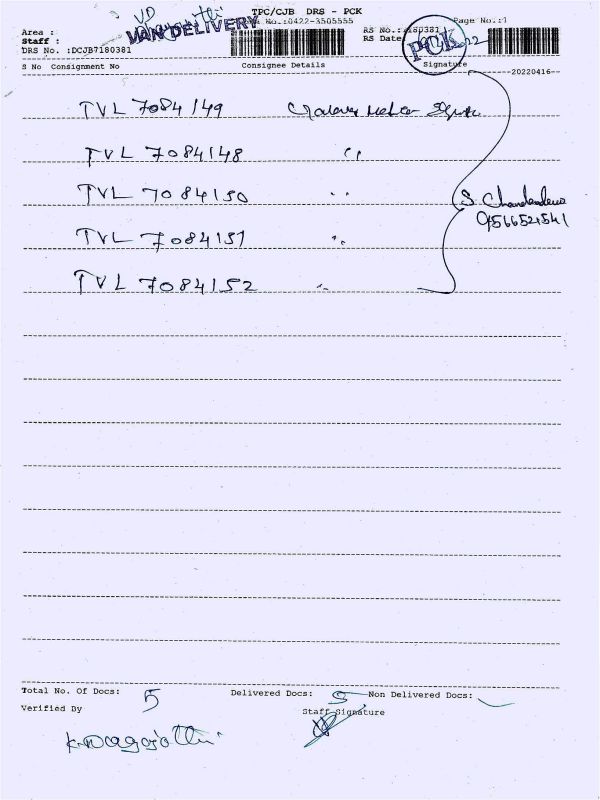 TPC/CJB DRS - PCK
VAN DELIVERY
No.:0422-3505555
Page No.:1
Area :
RS No.:
Staff :
RS Date
PCK
DRS No. :DCJB7180381
Signature
S No Consignment No Consignee Details
20220416
TVL 7084149
TVL 7084148 "
TVL 7084150 "
S.
TVL 7084151 "
9566521541
TVL 7084152 "
Total No. Of Docs: 5 Delivered Docs: 5 Non Delivered Docs:
Verified By Staff Signature